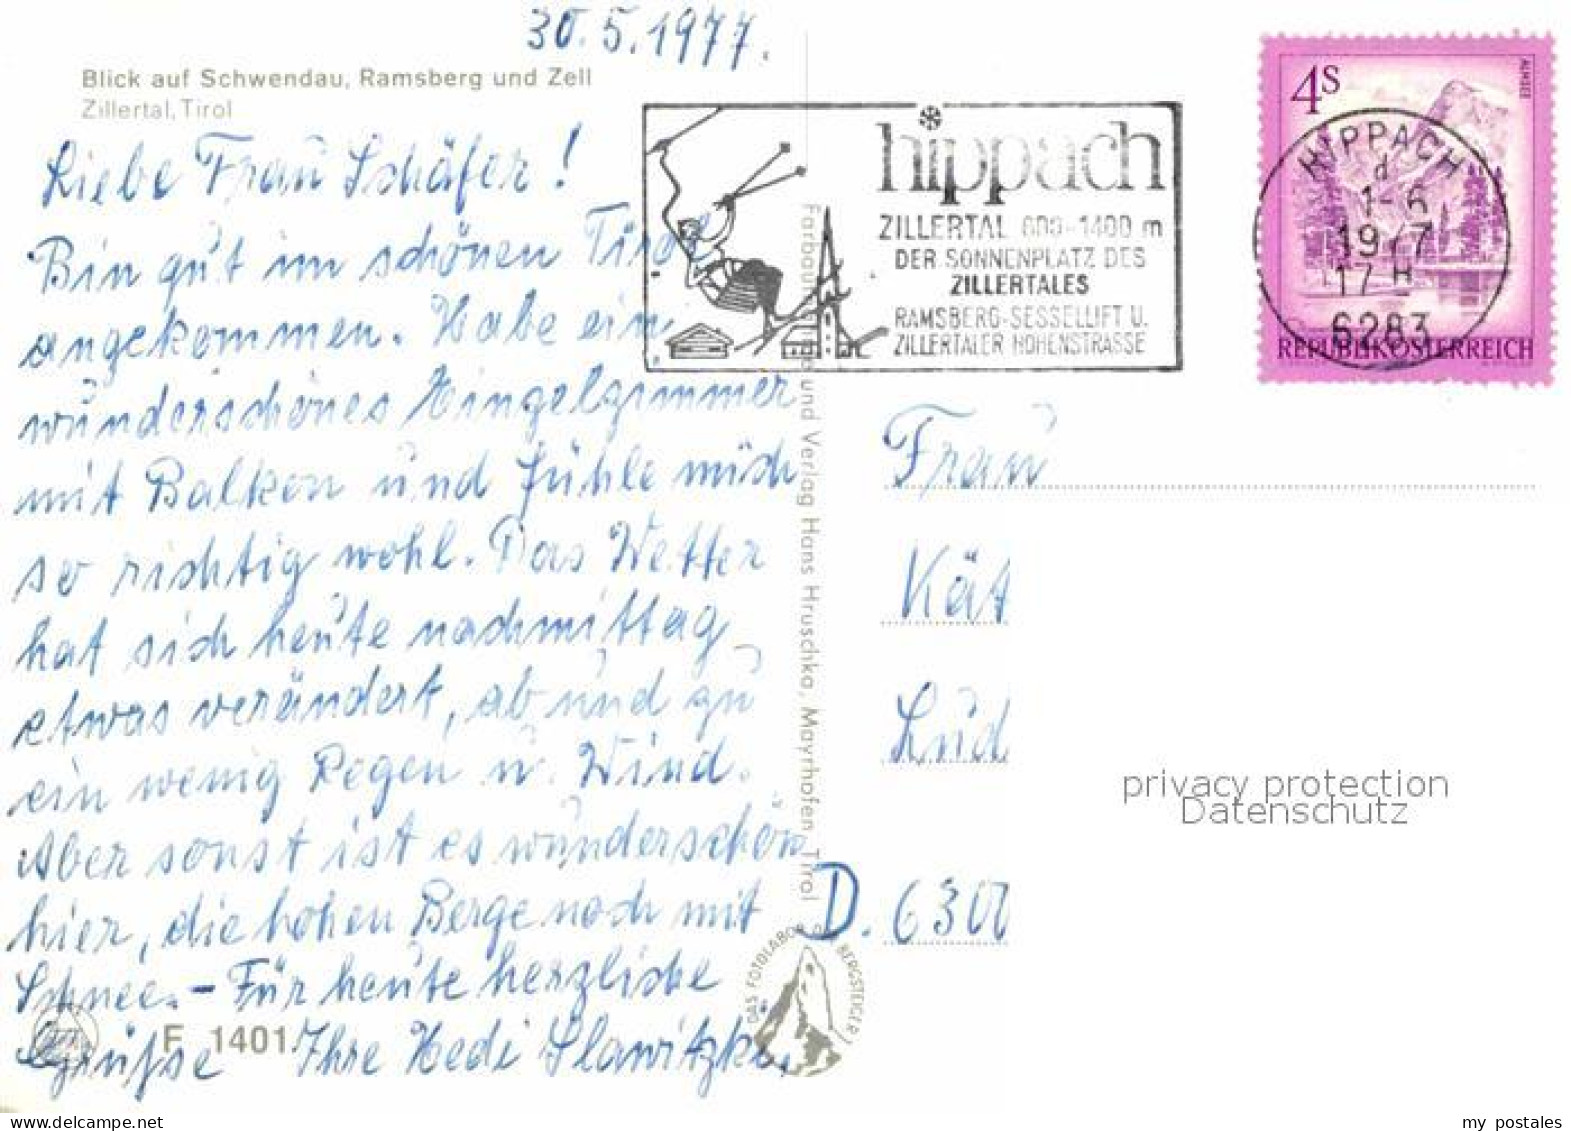 30.5.1977.
Blick auf Schwendau, Ramsberg und Zell
Zillertal, Tirol
Liebe Frau Schäfer!
Bin gut im schönen Tirol
angekommen. Habe ein
wunderschönes Einzelzimmer
mit Balkon und fühle mich
so richtig wohl. Das Wetter
hat sich heute nachmittag
etwas verändert, ab und zu
ein wenig Regen u. Wind.
Aber sonst ist es wunderschön
hier, die hohen Berge noch mit
Schnee. - Für heute herzliche
Grüße Ihre Hedi Slawitzki.
F 1401
Farbaufnahme und Verlag Hans Hruschka, Mayrhofen Tirol
DAS FOTOLABOR DER BERGSTEIGER
hippach
ZILLERTAL 600-1400 m
DER SONNENPLATZ DES
ZILLERTALES
RAMSBERG-SESSELLIFT U.
ZILLERTALER HÖHENSTRASSE
4S
ALMSEE
HIPPACH
d
1-6
1977
17 H
6283
REPUBLIK ÖSTERREICH
Frau
Kät
Lud
D. 6300
privacy protection
Datenschutz
my postales